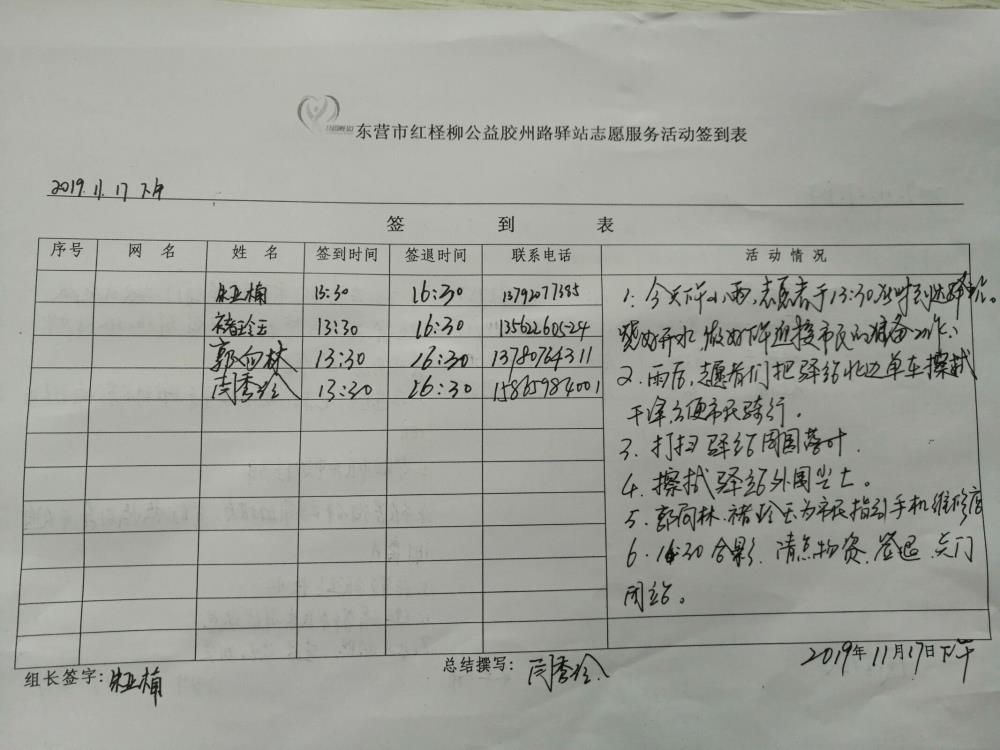 东营市红柽柳公益胶州路驿站志愿服务活动签到表
2019.11.17 下午
签 到 表
序号 网 名 姓 名 签到时间 签退时间 联系电话 活 动 情 况
朱亚楠 13:30 16:30 13792077385
褚玲玉 13:30 16:30 13562260524
郭向林 13:30 16:30 13780764311
闫秀玲 13:30 16:30 15865984001
1. 今天下午小雨,志愿者于13:30准时到达驿站。
烧好开水 做好下午迎接市民的准备工作、
2. 雨后,志愿者们把驿站北边单车擦拭
干净,方便市民骑行。
3. 打扫驿站周围落叶.
4. 擦拭驿站外围尘土。
5. 郭向林、褚玲玉为市民指引手机维修店
6. 16:30合影.清点物资.签退.关门
闭站。
2019年11月17日下午
组长签字:朱亚楠 总结撰写:闫秀玲